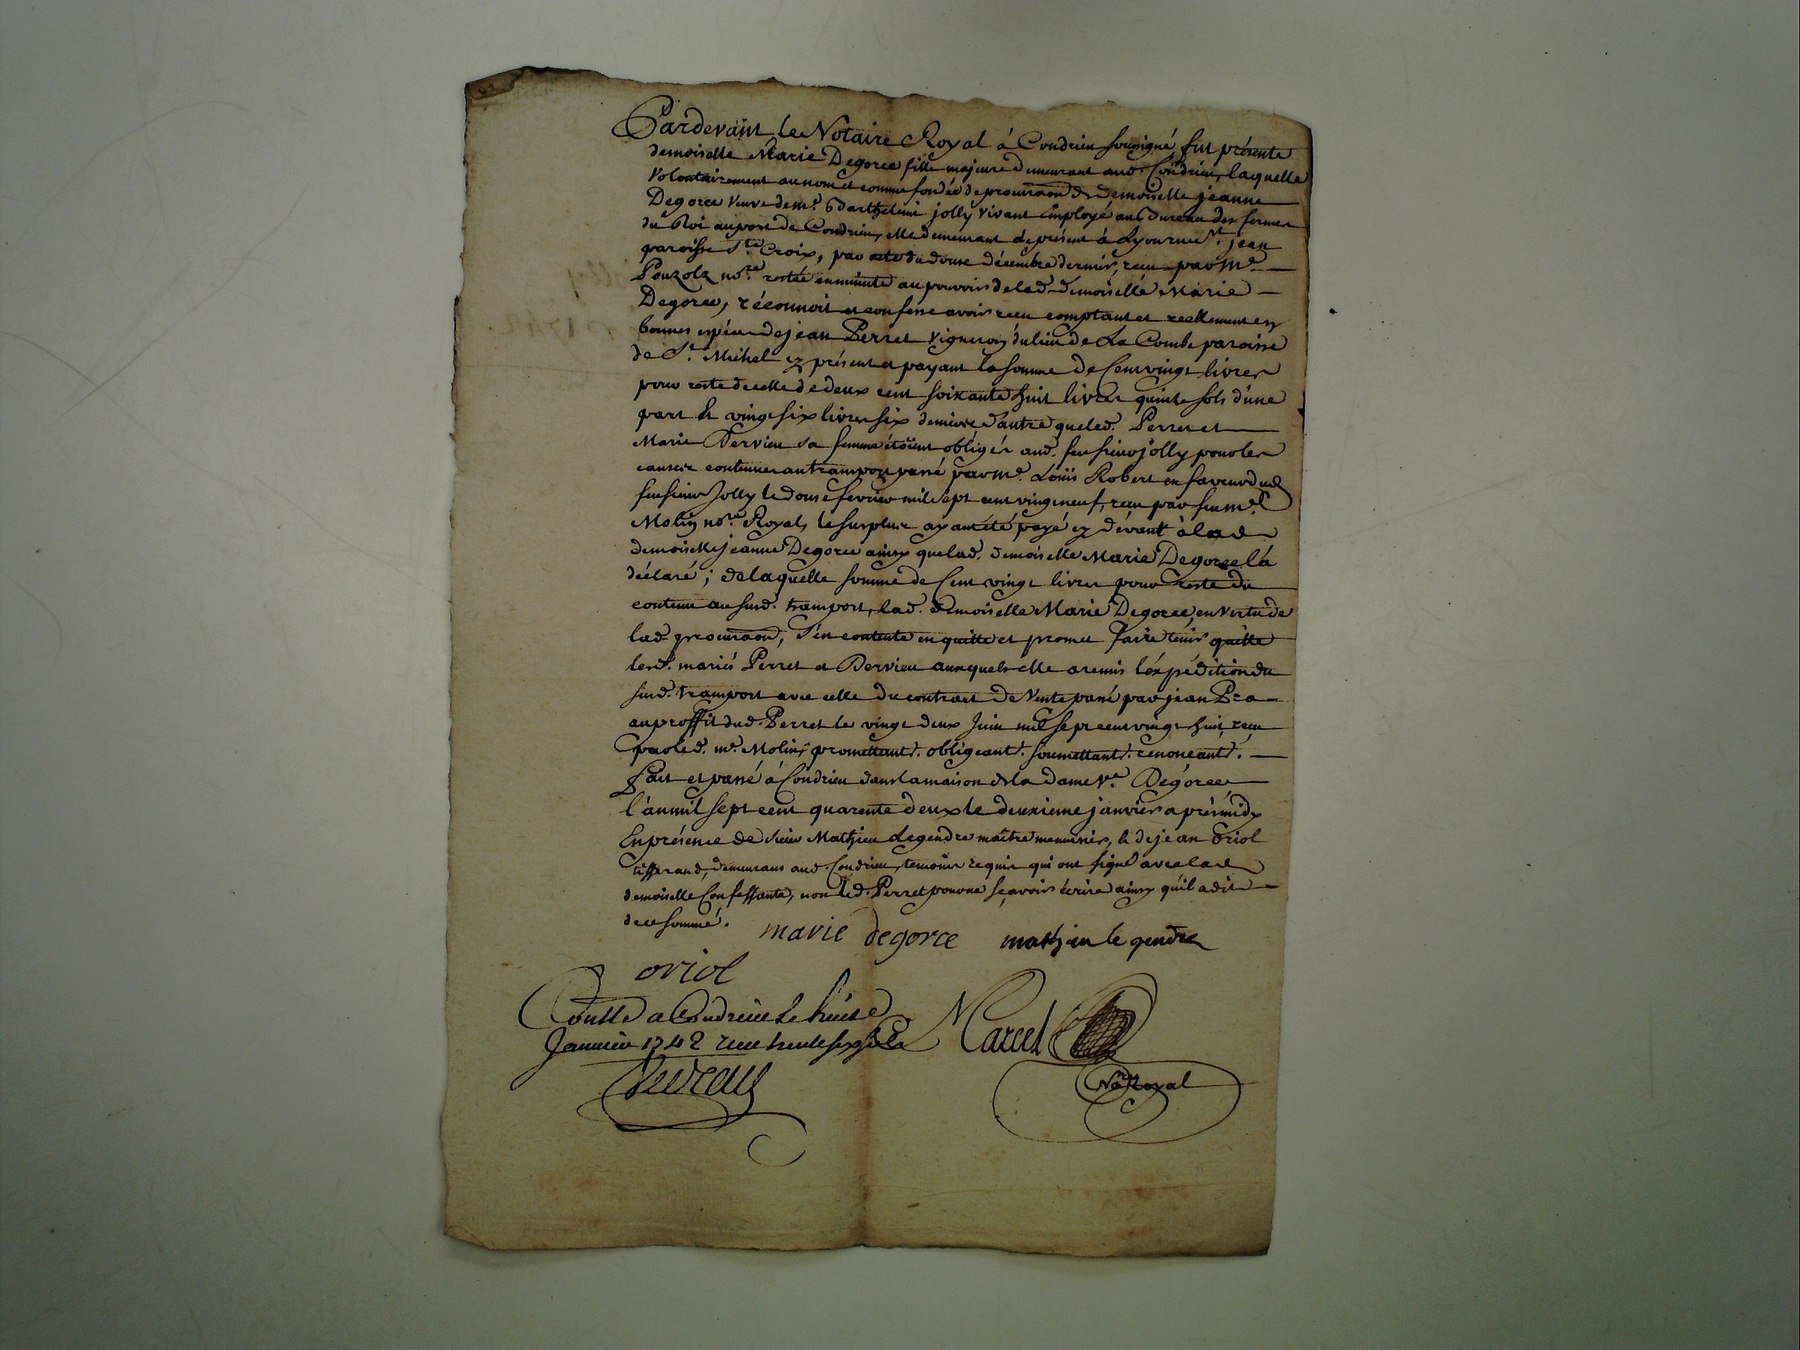 Pardevant le Notaire Royal à Condrieu soussigné fut présente
demoiselle Marie Degorce fille majeure demeurant aud. Condrieu, laquelle
volontairement au nom et comme fondée de procuraōn de demoiselle jeanne
Degorce veuve de mr. Barthelemi jolly vivant Employé au Bureau des fermes
du Roi au port de Condrieu, elle demeurant de présent à Lyon rue St. jean
paroisse Ste. Croix, par acte du douse décembre dernier, receu par Me.
Pouzolz nore. restée en minute au pouvoir de lad. demoiselle Marie
Degorce, réconnoit et confesse avoir receu comptant et reellement en
bonnes espéces de jean Perret vigneron du lieu de La Combe paroisse
de St. Michel cy présent et payant la somme de Cent vingt livres
pour reste de celle de deux cent soixante huit livres quinse sols d'une
part & vingt six livres six deniers d'autre que led. Perret et
Marie Dervieu sa femme étoient obligés aud. feu sieur jolly pour les
causes contenues au transport passé par Me. Loüis Robert en faveur dud.
feu sieur Jolly le douse fevrier mil sept cent vingt neuf, receu par feu Me.
Molin nore. Royal, le surplus ayant été payé cy dévant à lad.
demoiselle jeanne Degorce ainsy que lad. demoiselle Marie Degorce l'a
déclaré; de laquelle somme de Cent vingt livres pour reste du
contenu au susd. transport, lad. demoiselle Marie Degorce, en vertu de
lad. procuraōn, s'en contente en quitte et promet faire tenir quitte
lesd. mariés Perret et Dervieu auxquels elle a remis l'éxpédition du
susd. transport avec celle du contract de vente passé par jean Pra
au proffit dud. Perret le vingt deux Juin mil sept cent vingt huit, receu
par led. me. Molin; promettant. obligeant. soumettant. renonceant.
Fait et passé à Condrieu dans la maison de la dame ve. Degorce
l'an mil sept cent quarente deux le deuxieme janvier aprés midy
En présence de sieur Mathieu Legendre maître menuisier, & de jean Oriol
tisserand, demeurans aud. Condrieu, temoins requis qui ont signé avec lad.
demoiselle Confessante, non led. Perret pour ne sçavoir écrire ainsy qu'il a dit
de ce sommé.
marie degorce mathieu le gendre
oriol
Conllé a Condrieu le huit
Janvier 1742 receu
Marcel
Nore Royal